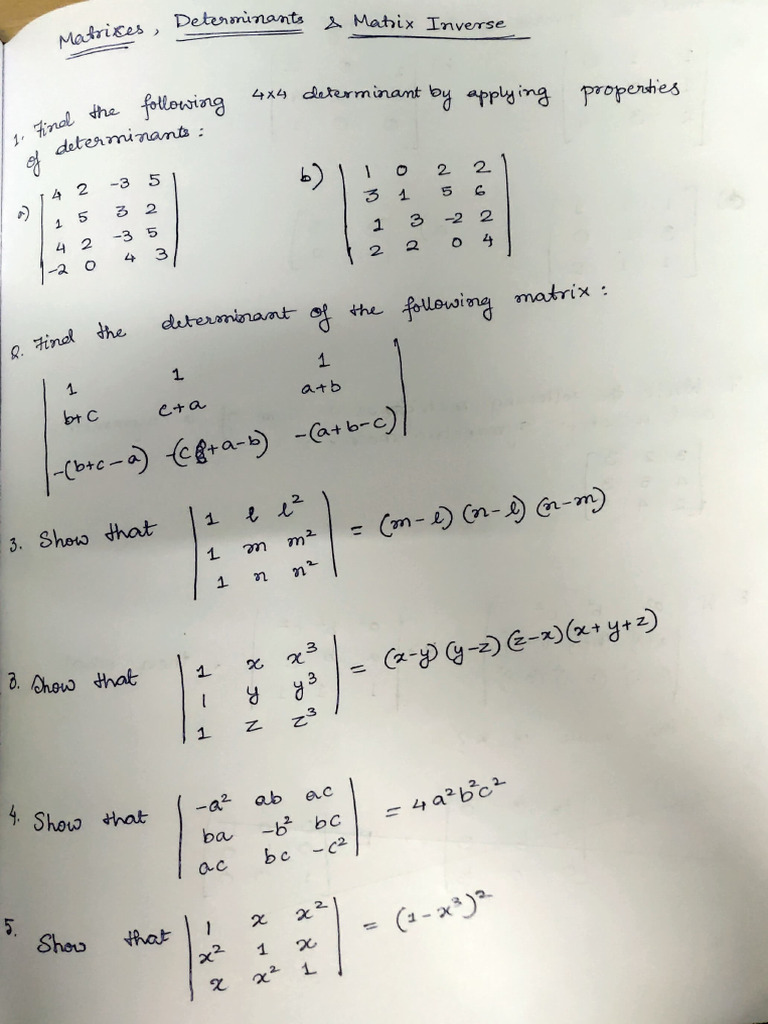 Matrixes, Determinants & Matrix Inverse
1. Find the following 4x4 determinant by applying properties
of determinants:
a) | 4 2 -3 5 |
| 1 5 3 2 |
| 4 2 -3 5 |
| -2 0 4 3 |
b) | 1 0 2 2 |
| 3 1 5 6 |
| 1 3 -2 2 |
| 2 2 0 4 |
2. Find the determinant of the following matrix:
| 1 1 1 |
| b+c c+a a+b |
| -(b+c-a) -(c+a-b) -(a+b-c) |
3. Show that | 1 l l² |
| 1 m m² | = (m-l) (n-l) (n-m)
| 1 n n² |
3. Show that | 1 x x³ |
| 1 y y³ | = (x-y) (y-z) (z-x) (x+y+z)
| 1 z z³ |
4. Show that | -a² ab ac |
| ba -b² bc | = 4a²b²c²
| ac bc -c² |
5. Show that | 1 x x² |
| x² 1 x | = (1-x³)²
| x x² 1 |